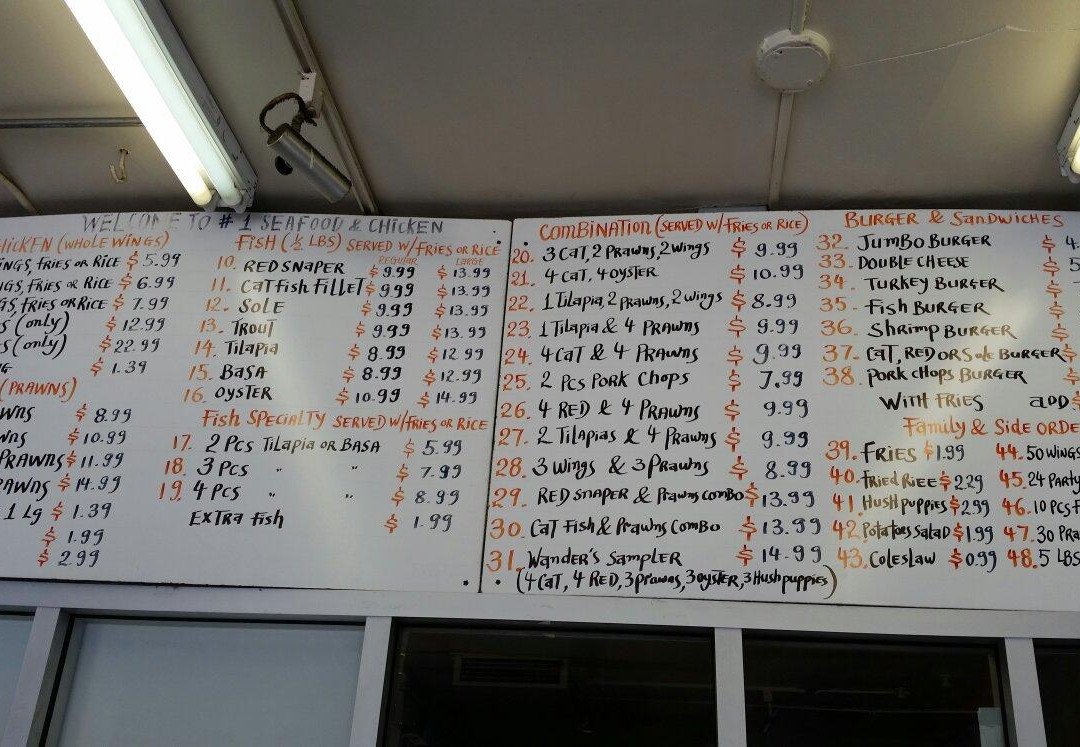 WELCOME TO #1 SEAFOOD & CHICKEN
(WHOLE WINGS)
FRIES OR RICE $5.99
FRIES OR RICE $6.99
FRIES OR RICE $7.99
(only) $12.99
(only) $22.99
$1.39
(PRAWNS)
$8.99
$10.99
PRAWNS $11.99
$14.99
1 Lg $1.39
$1.99
$2.99
FISH (½ LBS) SERVED W/FRIES OR RICE
REGULAR LARGE
10. RED SNAPER $9.99 $13.99
11. CATFISH FILLET $9.99 $13.99
12. SOLE $9.99 $13.99
13. TROUT $9.99 $13.99
14. Tilapia $8.99 $12.99
15. BASA $8.99 $12.99
16. OYSTER $10.99 $14.99
Fish SPECIALTY SERVED W/FRIES OR RICE
17. 2 Pcs Tilapia OR BASA $5.99
18. 3 Pcs " " $7.99
19. 4 Pcs " " $8.99
EXTRA fish $1.99
COMBINATION (SERVED W/FRIES OR RICE)
20. 3 CAT, 2 Prawns, 2 wings $9.99
21. 4 CAT, 4 OYSTER $10.99
22. 1 Tilapia, 2 prawns, 2 wings $8.99
23. 1 Tilapia & 4 PRAWNS $9.99
24. 4 CAT & 4 PRAWNS $9.99
25. 2 Pcs PORK Chops $7.99
26. 4 RED & 4 PRAWNS $9.99
27. 2 Tilapias & 4 Prawns $9.99
28. 3 Wings & 3 Prawns $8.99
29. RED SNAPER & Prawns combo $13.99
30. CAT Fish & Prawns Combo $13.99
31. Wander's Sampler $14.99
(4 CAT, 4 RED, 3 prawns, 3 oyster, 3 Hush puppies)
BURGER & SANDWICHES
32. JUMBO BURGER $4
33. DOUBLE CHEESE
34. TURKEY BURGER
35. Fish BURGER
36. Shrimp BURGER
37. CAT, RED OR Sole BURGER $
38. PORK CHOPS BURGER
WITH FRIES ADD $
Family & Side ORDE
39. FRIES $1.99 44. 50 WINGS
40. Fried Riee $2.29 45. 24 PARTY
41. Hush puppies $2.99 46. 10 PCS
42. Potatoes Salad $1.99 47. 30 PRA
43. Coleslaw $0.99 48. 5 LBS